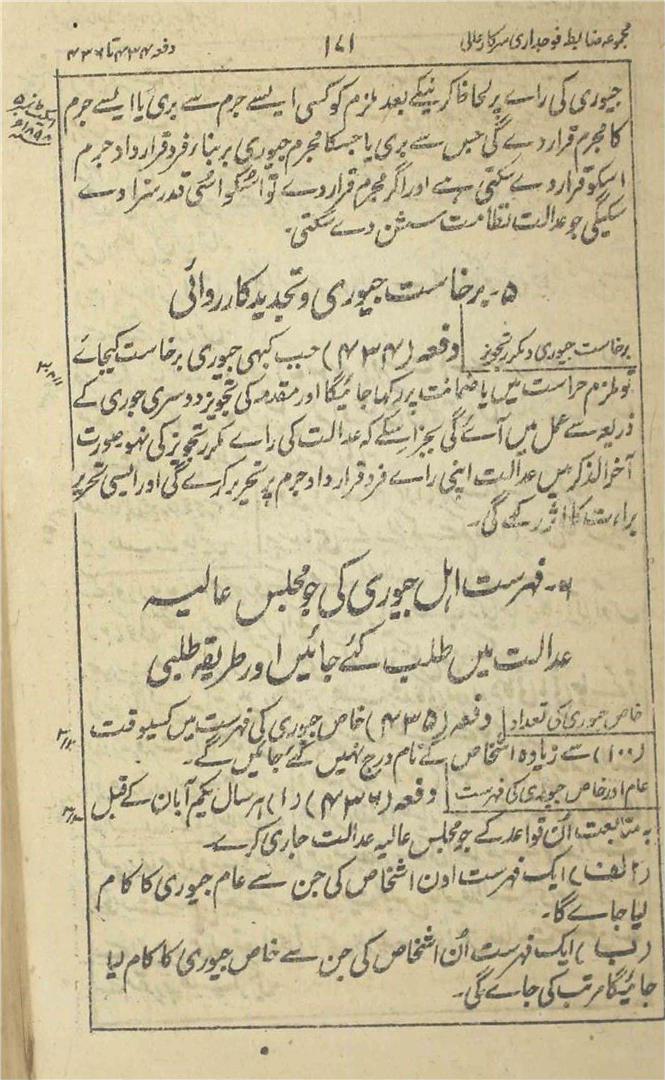 مجموعہ ضابطہ فوجداری سرکار عالی
۱۷۱
دفعہ ۴۳۴ تا ۴۳۶
جیوری کی راے پر لحاظ کرنیکے بعد ملزم کو کسی ایسے جرم سے بری یا ایسے جرم
کا مجرم قرار دے گی جس سے بری یا جسکا مجرم جیوری بر بناء فرد قرار داد جرم
اسکو قرار دے سکتی ہے اور اگر مجرم قرار دے تو اسکو اسی قدر سزا دے
سکیگی جو عدالت نظامت سشن دے سکتی۔
۵۔ برخاست جیوری و تجدید کارروائی
برخاست جیوری و مکرر تجویز
دفعہ (۴۳۴) جب کبھی جیوری برخاست کیجائے
تو ملزم حراست میں یا ضمانت پر رکہا جائیگا اور مقدمہ کی تجویز دوسری جوری کے
ذریعہ سے عمل میں آے گی بجز اسکے کہ عدالت کی راے مکرر تجویز کی نہو صورت
آخر الذکر میں عدالت اپنی راے فرد قرار داد جرم پر تحریر کرے گی اور ایسی تحریر
براءت کا اثر رکھے گی۔
۶۔ فہرست اہل جیوری کی جو مجلس عالیہ
عدالت میں طلب کئے جائیں اور طریقہ طلبی
خاص جیوری کی تعداد
دفعہ (۴۳۵) خاص جیوری کی فہرست میں کسیوقت
(۱۰۰) سے زیادہ اشخاص کے نام درج نہیں کئے جائیں گے۔
عام اور خاص جیوری کی فہرست
دفعہ (۴۳۶) (۱) ہر سال یکم آبان کے قبل
بہ متابعت اُن قواعد کے جو مجلس عالیہ عدالت جاری کرے۔
(الف) ایک فہرست اون اشخاص کی جن سے عام جیوری کا کام
لیا جاے گا۔
(ب) ایک فہرست اُن اشخاص کی جن سے خاص جیوری کا کام لیا
جائیگا مرتب کی جاے گی۔